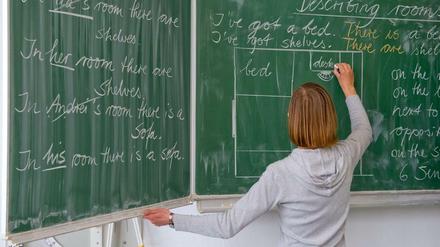 Jake's room there are
shelves
In her room there are
shelves.
In Andrei's room there is a
sofa.
In his room there is a sofa.
Describing room
I've got a bed. There is a be
I've got shelves. There are shel
bed
desk
on the
on the
next to
opposi
on the s
6 Sen